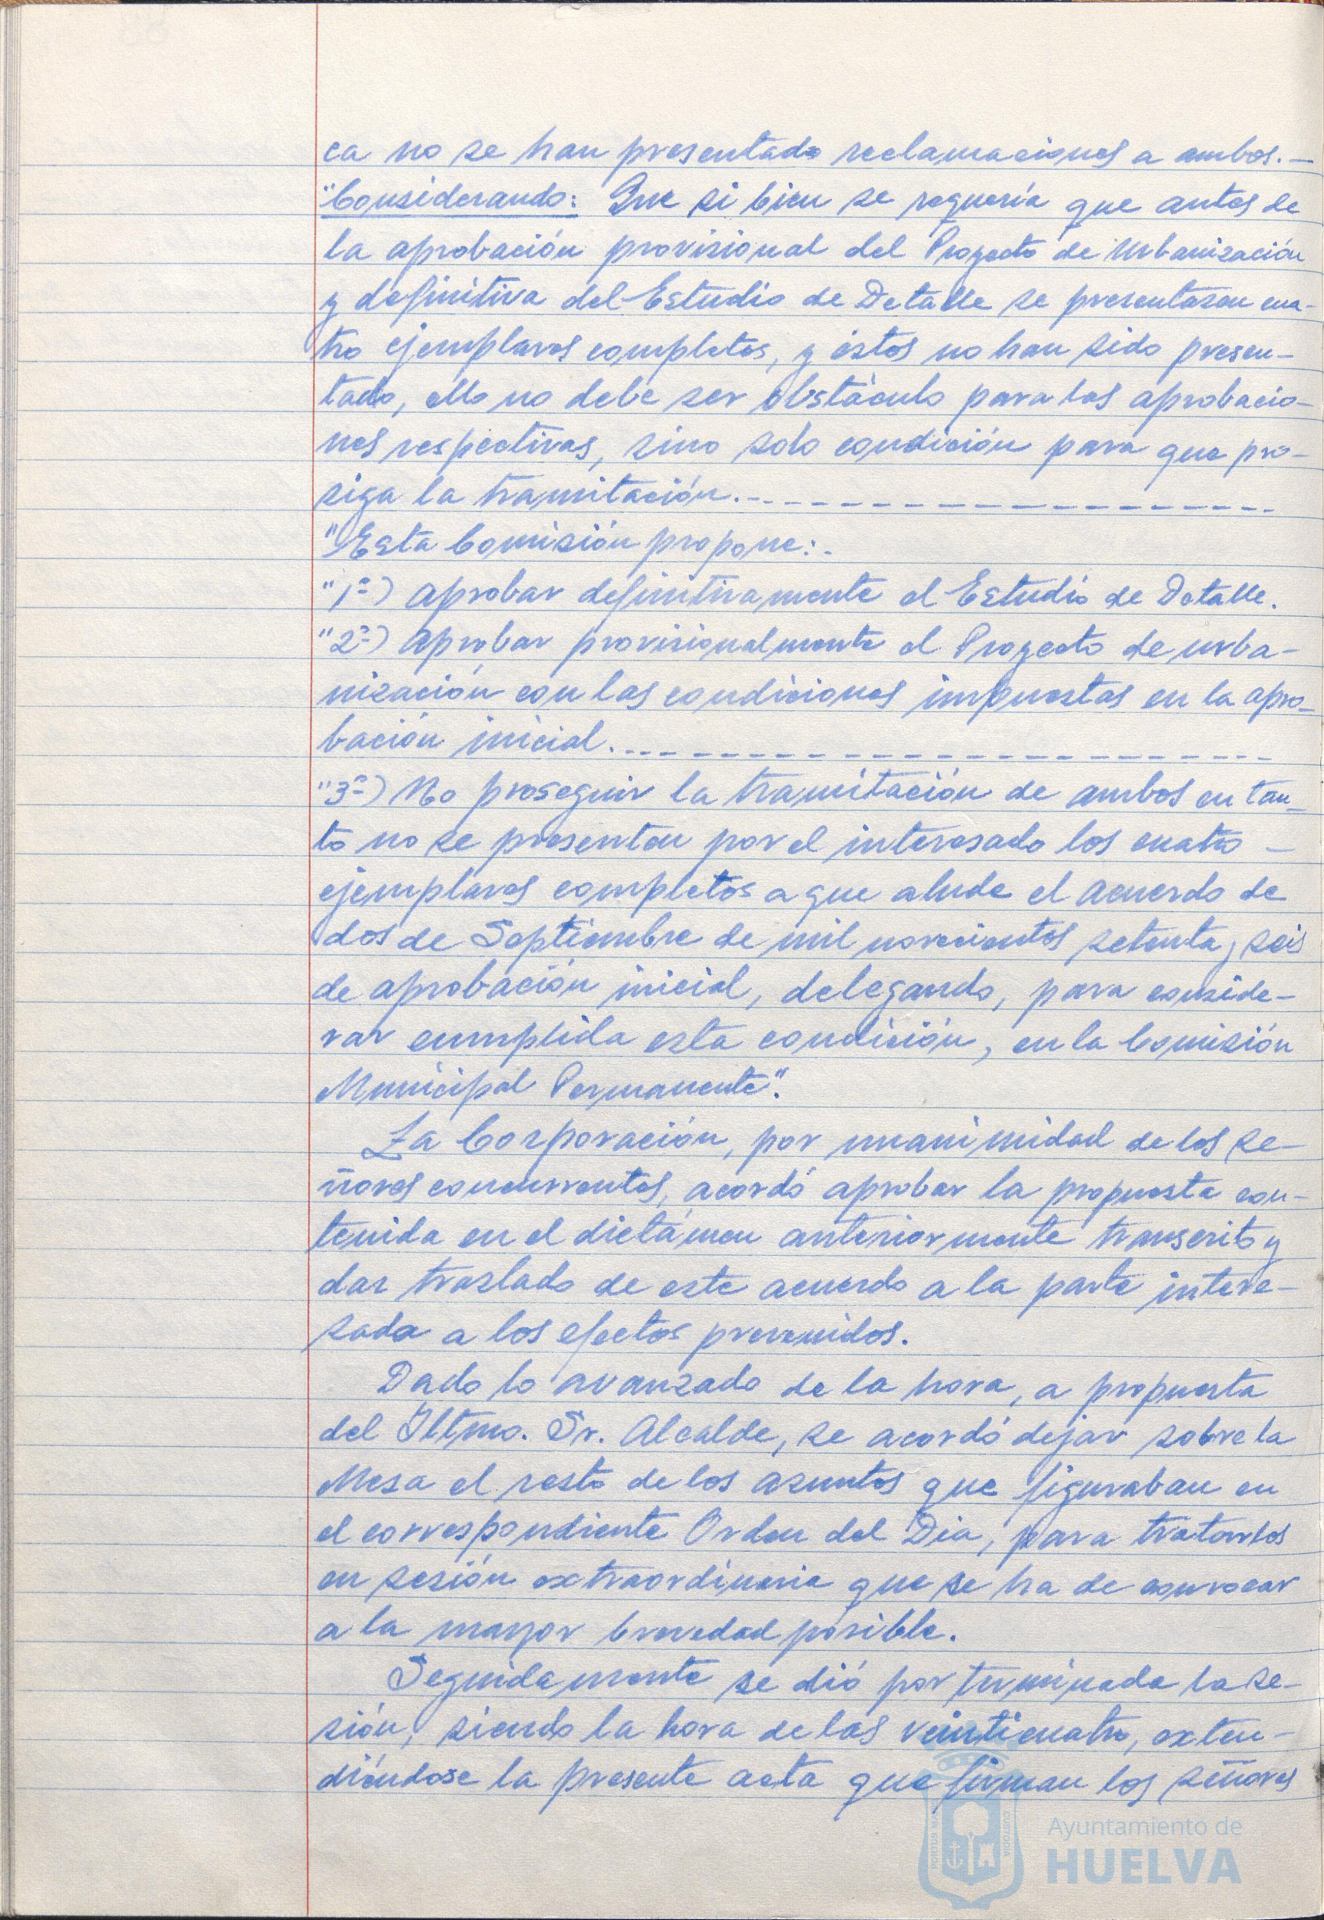 ca no se han presentado reclamaciones a ambos.—
"Considerando: Que si bien se requería que antes de
la aprobación provisional del Proyecto de Urbanización
y definitiva del Estudio de Detalle se presentasen cua-
tro ejemplares completos, y éstos no han sido presen-
tado, ello no debe ser obstáculo para las aprobacio-
nes respectivas, sino solo condición para que pro-
siga la tramitación.--------------------
"Esta Comisión propone:.
"1º-) Aprobar definitivamente el Estudio de Detalle.
"2º-) Aprobar provisionalmente el Proyecto de urba-
nización con las condiciones impuestas en la apro-
bación inicial.--------------------
"3º-) No proseguir la tramitación de ambos en tan-
to no se presenten por el interesado los cuatro —
ejemplares completos a que alude el acuerdo de
dos de Septiembre de mil novecientos setenta y seis
de aprobación inicial, delegando, para conside-
rar cumplida esta condición, en la Comisión
Municipal Permanente".
La Corporación, por unanimidad de los se-
ñores concurrentes, acordó aprobar la propuesta con-
tenida en el dictámen anteriormente transcrito y
dar traslado de este acuerdo a la parte intere-
sada a los efectos prevenidos.
Dado lo avanzado de la hora, a propuesta
del Iltmo. Sr. Alcalde, se acordó dejar sobre la
Mesa el resto de los asuntos que figuraban en
el correspondiente Orden del Dia, para tratarlos
en sesión extraordinaria que se ha de convocar
a la mayor brevedad posible.
Seguidamente se dió por terminada la se-
sión, siendo la hora de las veinticuatro, exten-
diéndose la presente acta que firman los señores
Ayuntamiento de
HUELVA